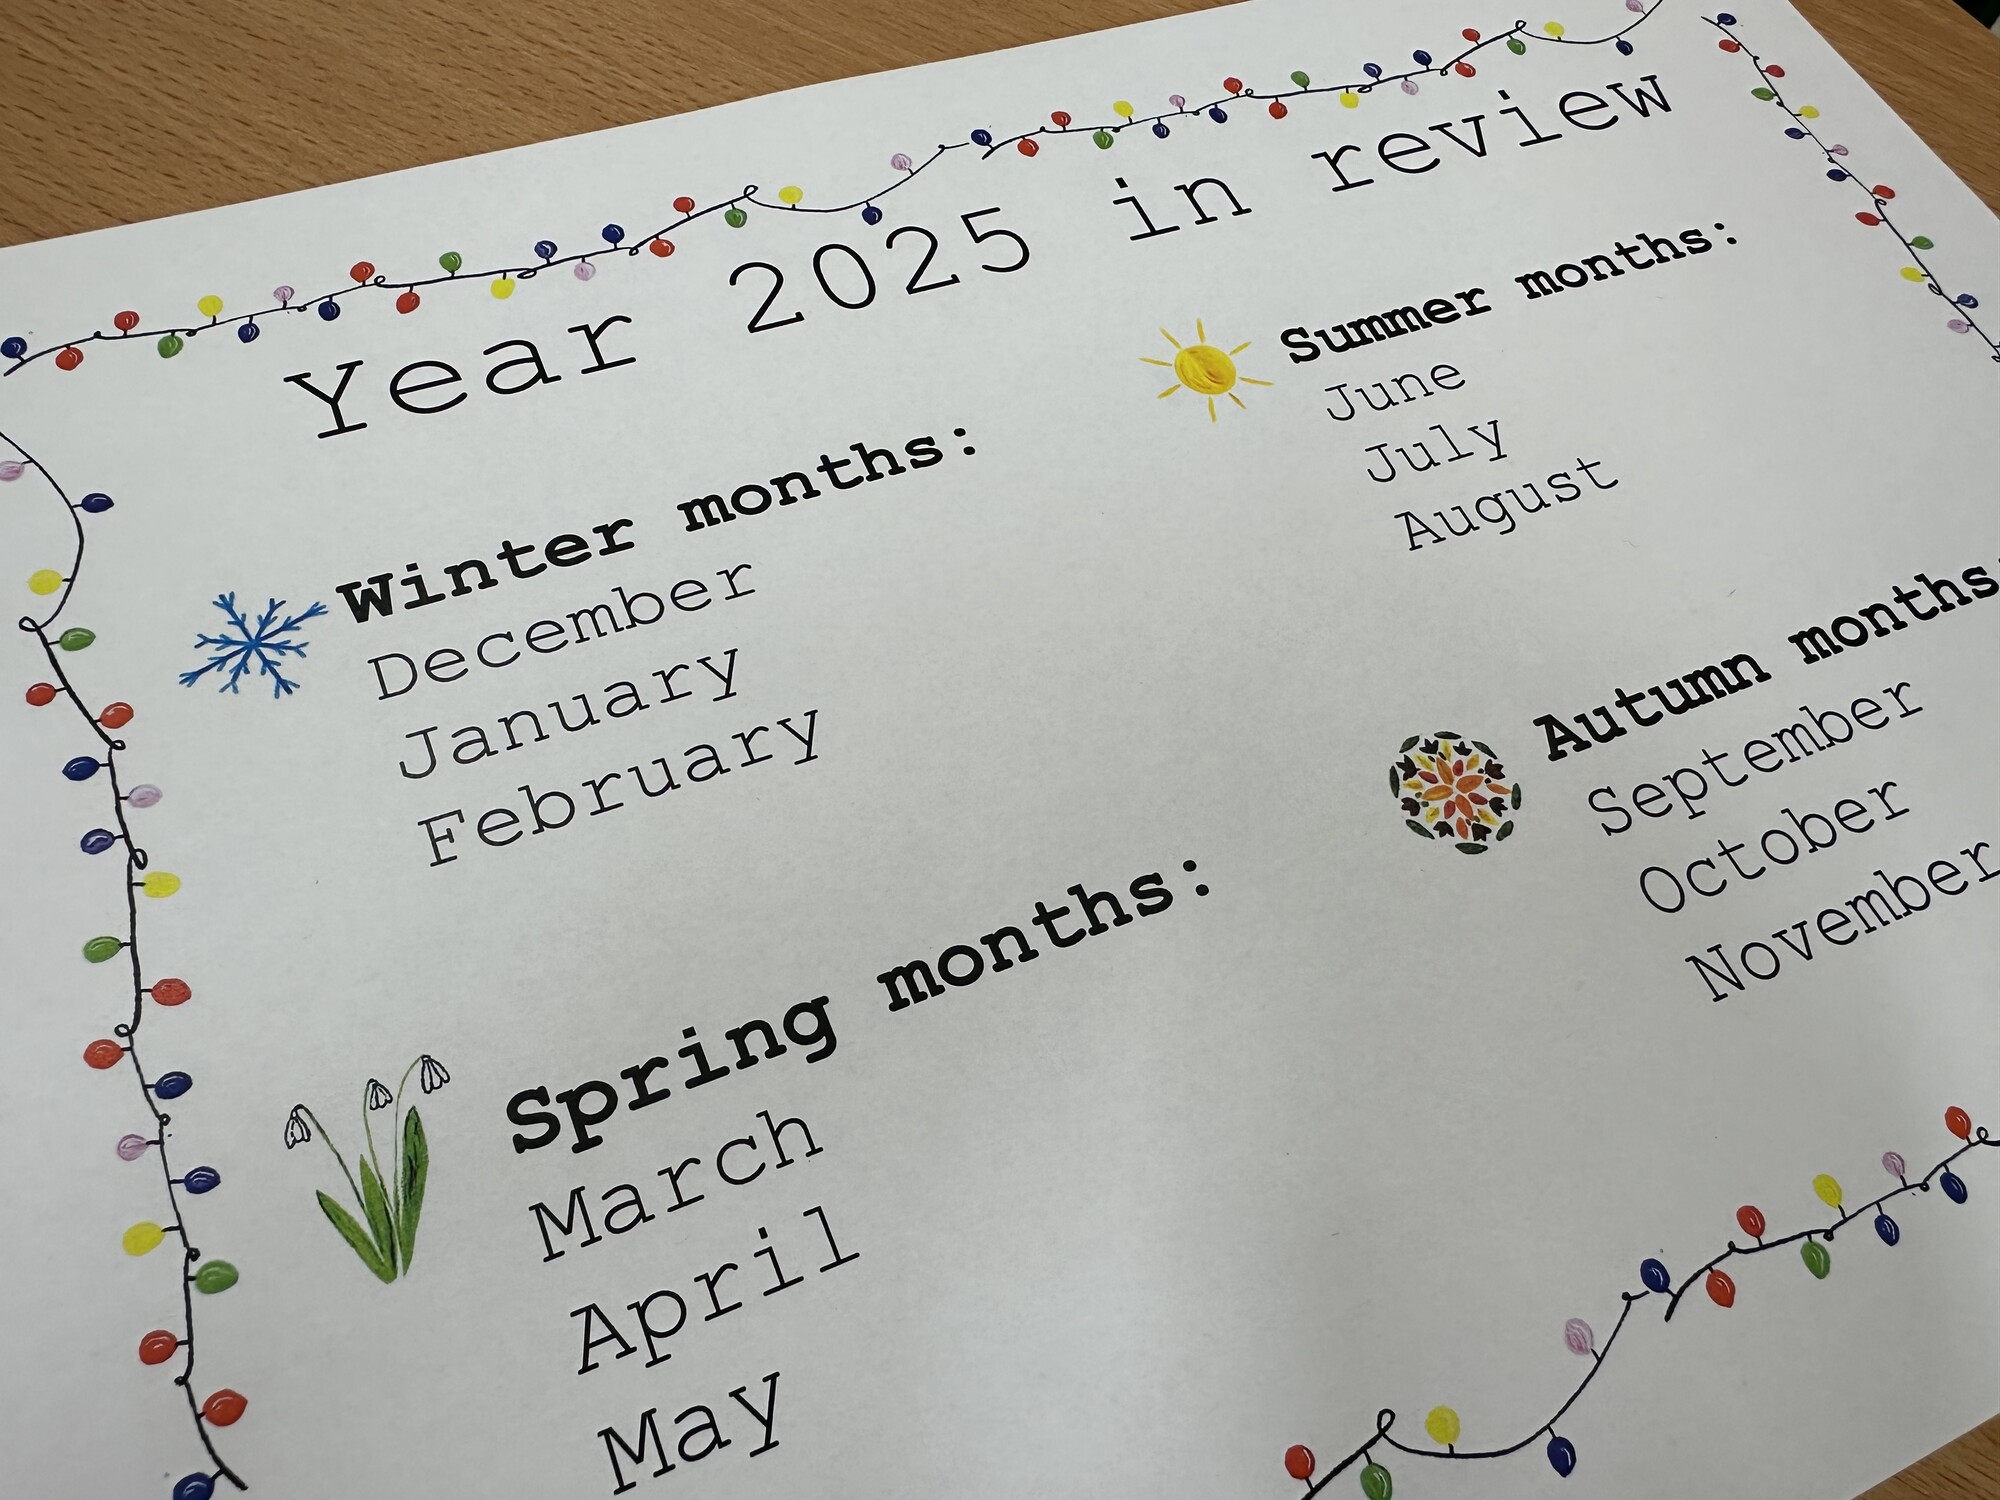 Year 2025 in review
Winter months:
December
January
February
Spring months:
March
April
May
Summer months:
June
July
August
Autumn months:
September
October
November